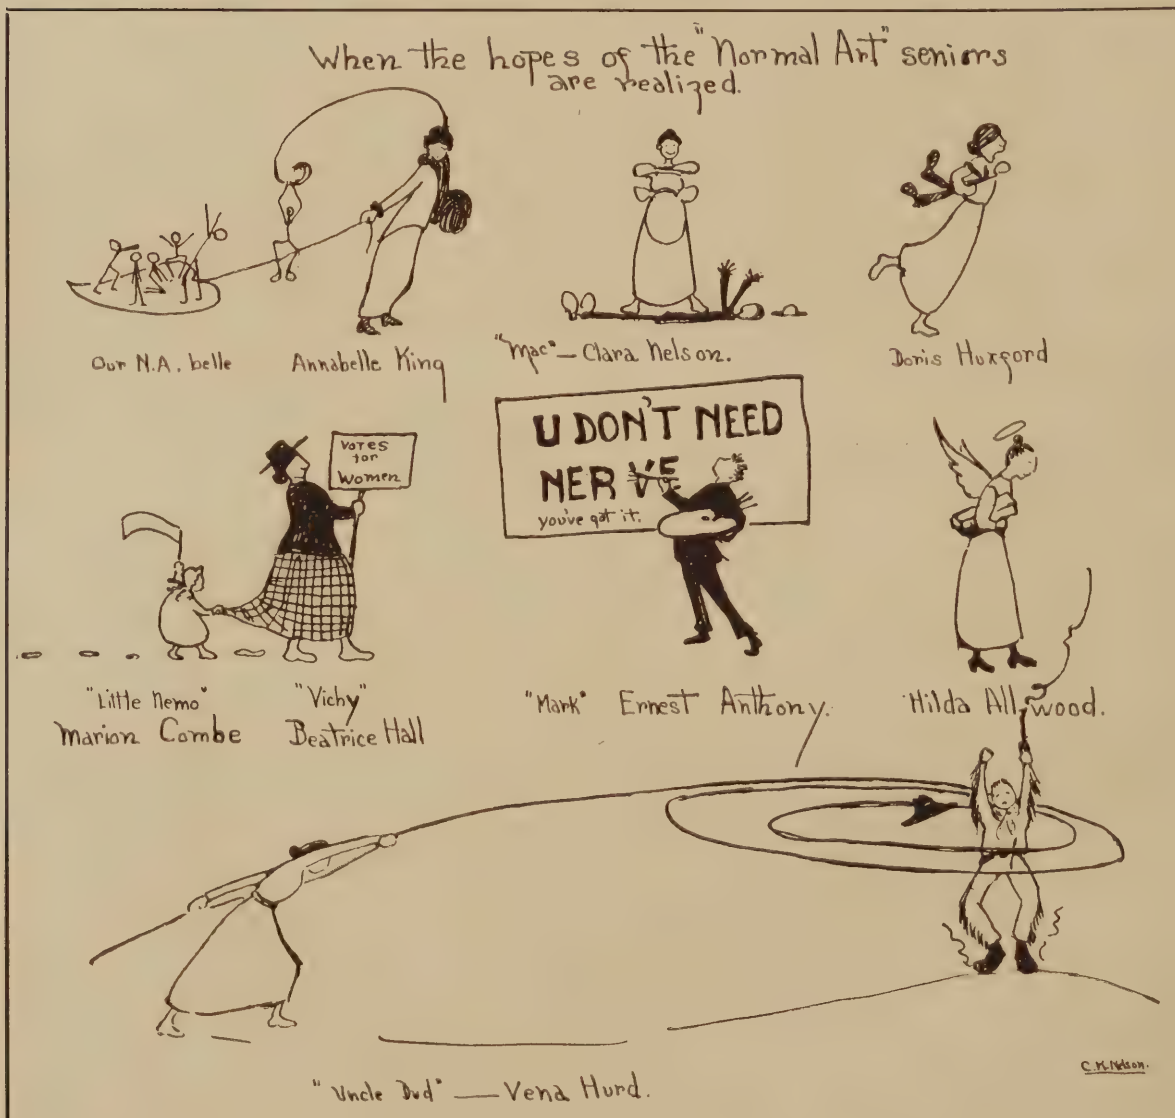 When the hopes of the "Normal Art" seniors
are realized.
Our N.A. belle
Annabelle King
"Mac" — Clara Nelson.
Doris Huxford
Votes
for
Women
U DON'T NEED
NERVE
you've got it.
"Little Nemo"
Marion Combe
"Vichy"
Beatrice Hall
"Mark" Ernest Anthony.
Hilda Allwood.
"Uncle Dud" — Vena Hurd.
C.M.Nelson.